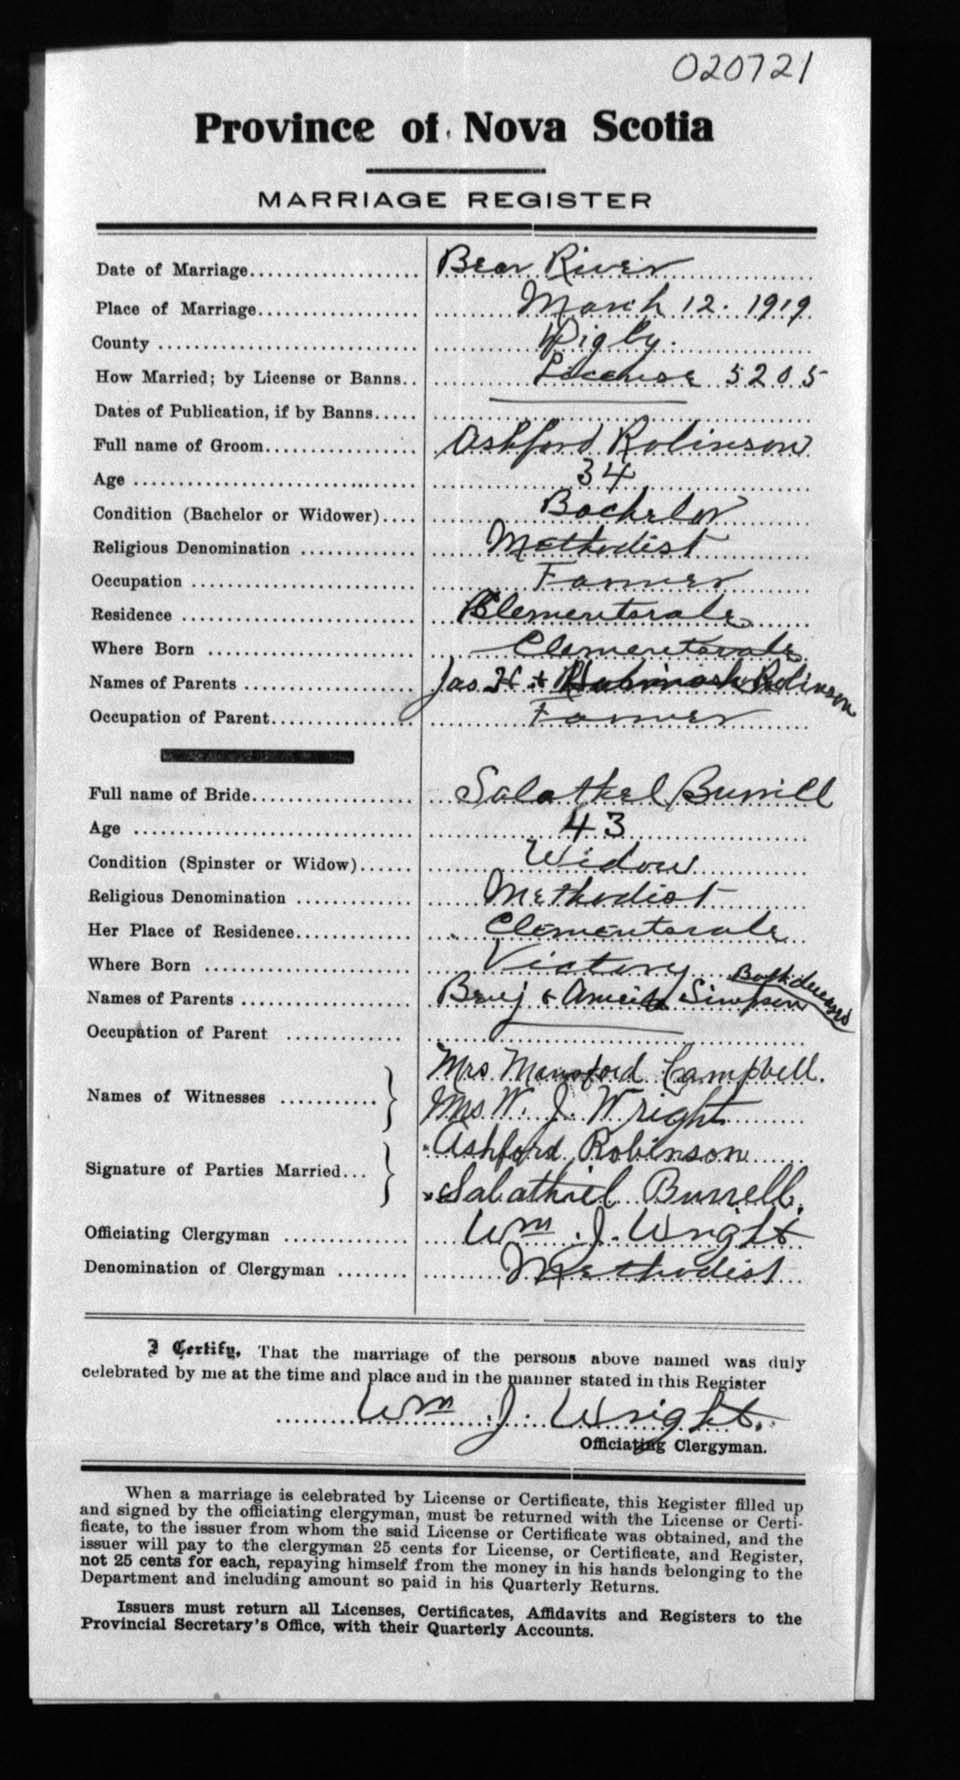 020721
Province of Nova Scotia
MARRIAGE REGISTER
Date of Marriage.................... Bear River
Place of Marriage.................. March 12. 1919
County ............................ Digby.
How Married; by License or Banns.. License 5205
Dates of Publication, if by Banns.....
Full name of Groom................. Ashford Robinson
Age ............................... 34
Condition (Bachelor or Widower).... Bachelor
Religious Denomination ............ Methodist
Occupation ........................ Farmer
Residence ......................... Clementsvale
Where Born ........................ Clementsvale
Names of Parents .................. Jas. H. + Robinson
Occupation of Parent............... Farmer
Full name of Bride.................. Salathel Burrill
Age ............................... 43
Condition (Spinster or Widow)...... Widow
Religious Denomination ............ Methodist
Her Place of Residence............. Clementsvale
Where Born ........................ Victory
Names of Parents .................. Benj + Simpson Both deceased
Occupation of Parent .............
Mrs. Mansford Campbell.
Names of Witnesses ........... } Mrs W. J. Wright
Ashford Robinson
Signature of Parties Married... } Salathiel Burrell.
Officiating Clergyman ............. Wm. J. Wright
Denomination of Clergyman ........ Methodist
I Certify, That the marriage of the persons above named was duly
celebrated by me at the time and place and in the manner stated in this Register
Wm. J. Wright.
Officiating Clergyman.
When a marriage is celebrated by License or Certificate, this Register filled up
and signed by the officiating clergyman, must be returned with the License or Certi-
ficate, to the issuer from whom the said License or Certificate was obtained, and the
issuer will pay to the clergyman 25 cents for License, or Certificate, and Register,
not 25 cents for each, repaying himself from the money in his hands belonging to the
Department and including amount so paid in his Quarterly Returns.
Issuers must return all Licenses, Certificates, Affidavits and Registers to the
Provincial Secretary's Office, with their Quarterly Accounts.